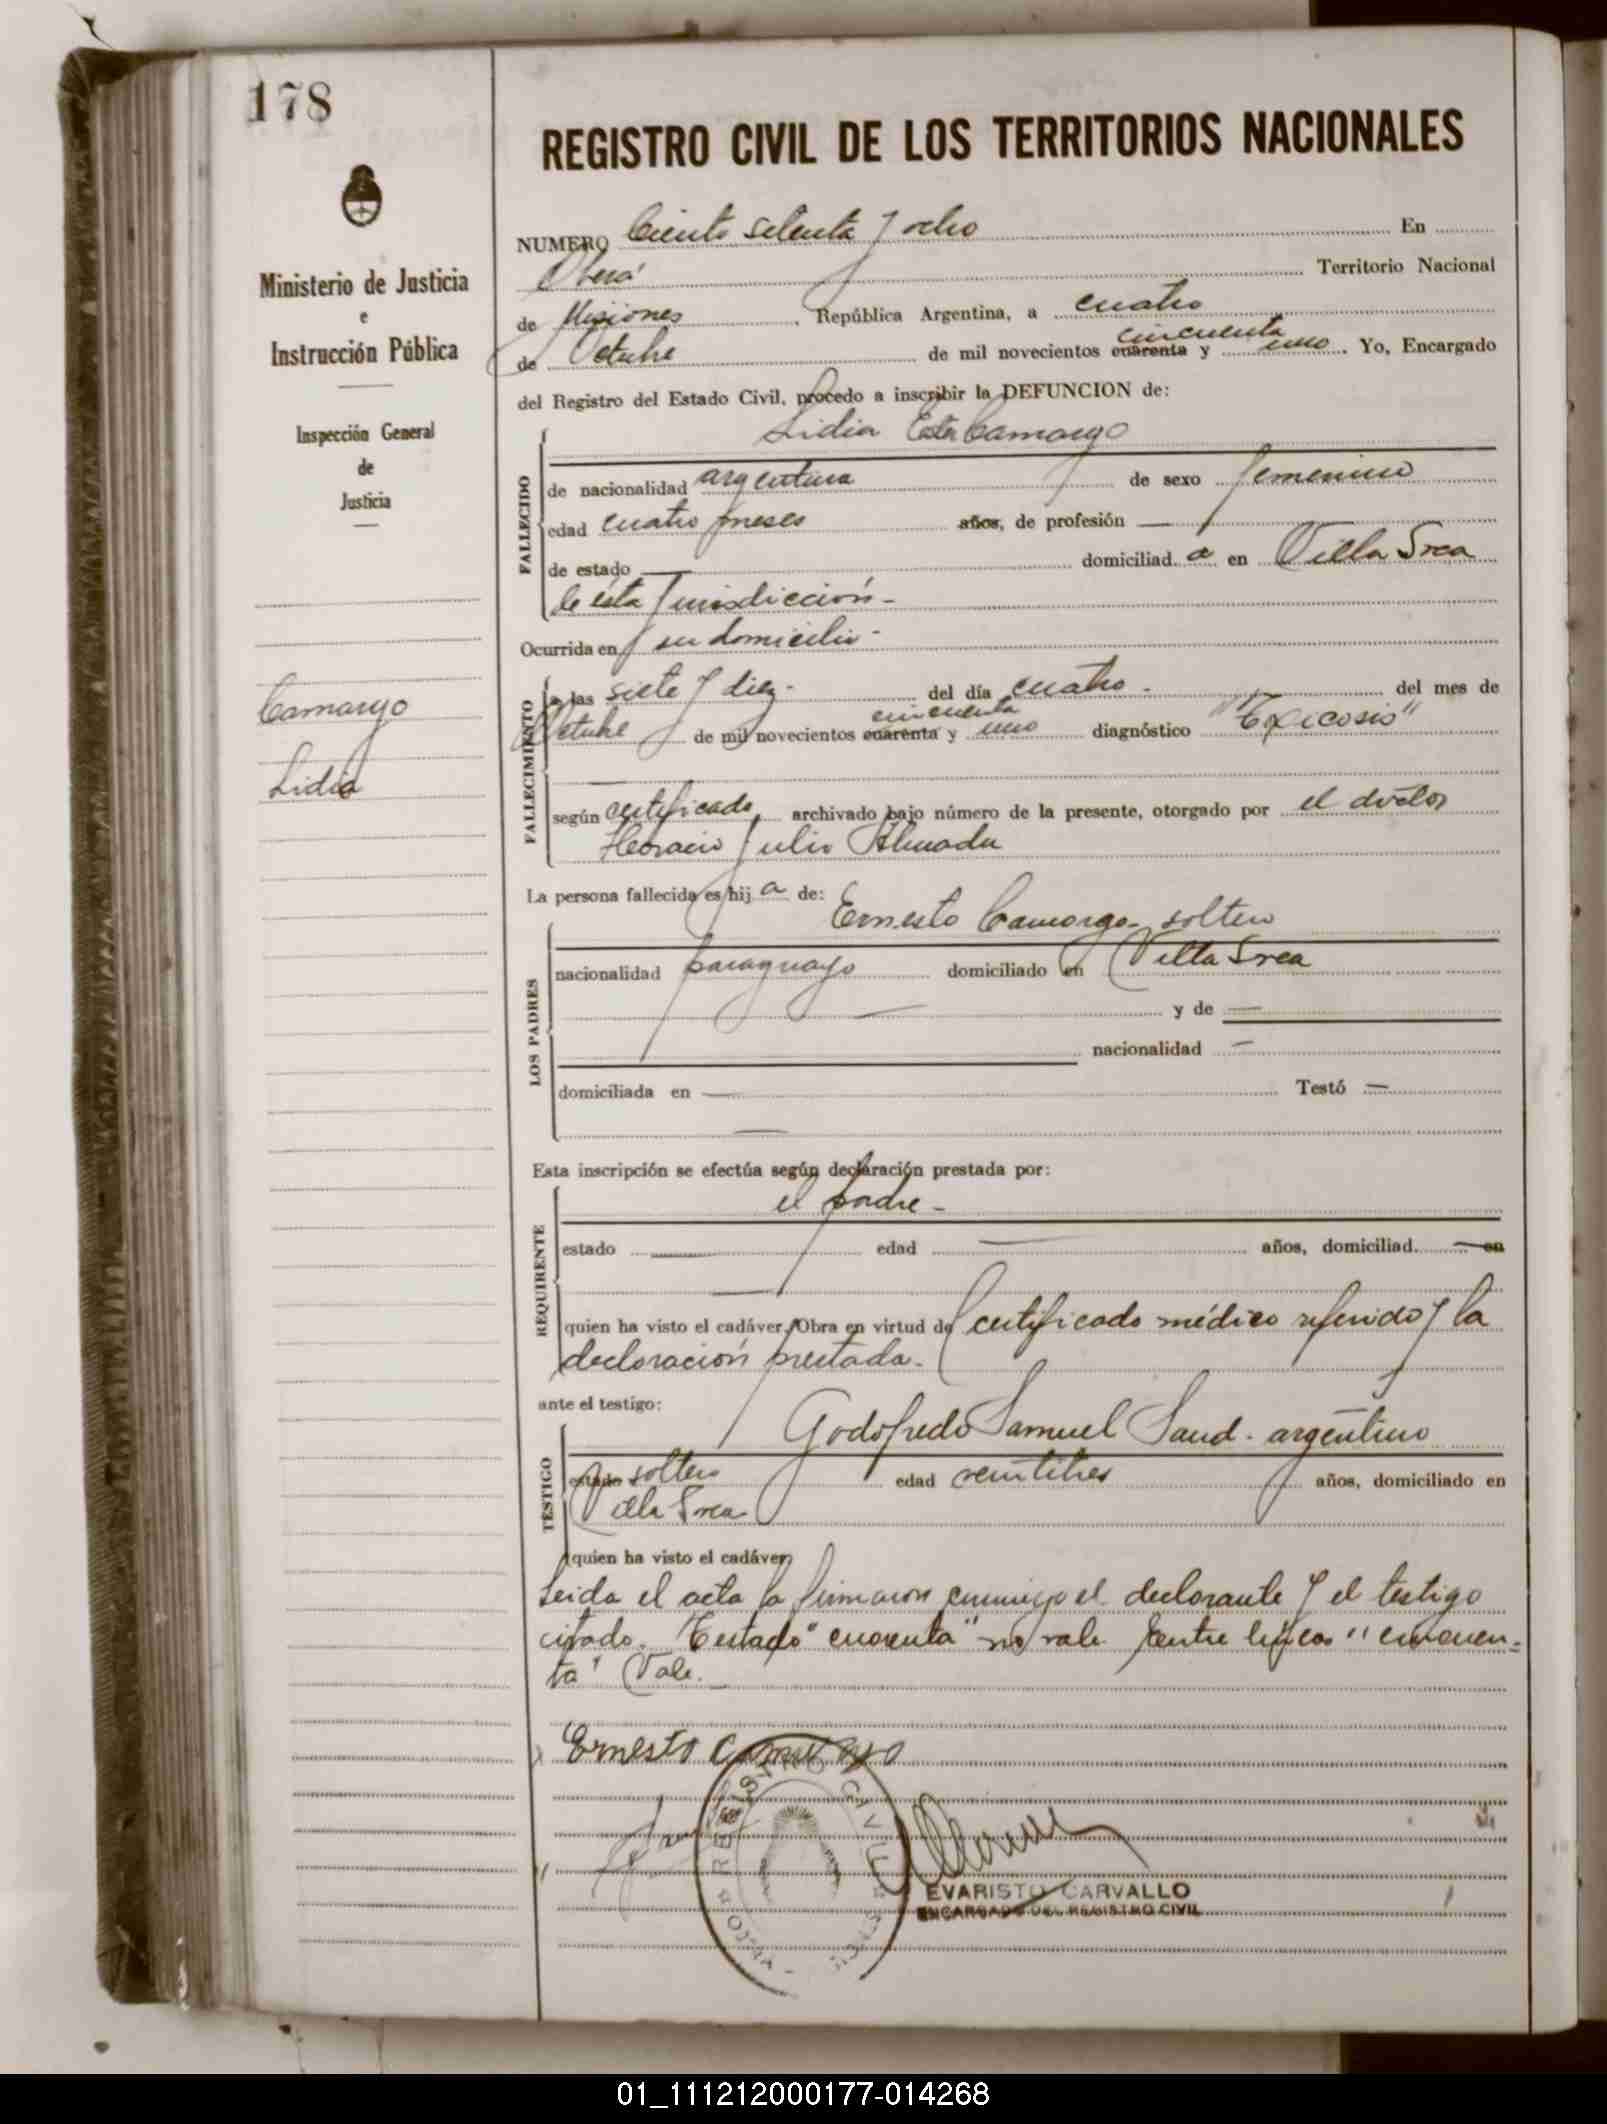 178
Ministerio de Justicia
e
Instrucción Pública
Inspección General
de
Justicia
Camargo
Lidia
REGISTRO CIVIL DE LOS TERRITORIOS NACIONALES
NUMERO Ciento setenta y ocho En
Oberá Territorio Nacional
de Misiones, República Argentina, a cuatro
cincuenta
de Octubre de mil novecientos cuarenta y uno. Yo, Encargado
del Registro del Estado Civil, procedo a inscribir la DEFUNCION de:
Lidia Ester Camargo
FALLECIDO
de nacionalidad argentina de sexo femenino
edad cuatro meses años, de profesión —
de estado — domiciliad a en Villa Svea
de esta Jurisdicción-
Ocurrida en su domicilio-
FALLECIMIENTO
a las siete y diez- del día cuatro- del mes de
cincuenta
Octubre de mil novecientos cuarenta y uno diagnóstico "Toxicosis"
—
según certificado, archivado bajo número de la presente, otorgado por el doctor
Horacio Julio Almada
La persona fallecida es hij a de:
LOS PADRES
Ernesto Camargo- soltero
nacionalidad paraguayo domiciliado en Villa Svea
— y de —
nacionalidad —
domiciliada en — Testó —
—
Esta inscripción se efectúa según declaración prestada por:
REQUIRENTE
el padre-
estado — edad — años, domiciliad — en
—
quien ha visto el cadáver. Obra en virtud de Certificado médico referido y la
declaración prestada.
ante el testigo:
TESTIGO
Godofredo Samuel Sand. argentino
estado soltero edad veintitres años, domiciliado en
Villa Svea
quien ha visto el cadáver
Leida el acta la firmaron conmigo el declarante y el testigo
citado. Testado "cuarenta" no vale. Entre líneas "cincuen-
ta" Vale.
Ernesto Camargo
REGISTRO CIVIL
EVARISTO CARVALLO
ENCARGADO DEL REGISTRO CIVIL
01_111212000177-014268